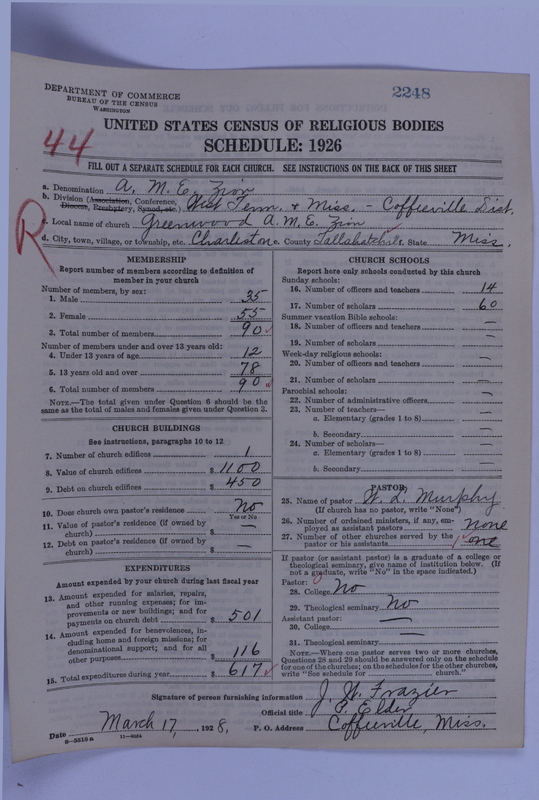 DEPARTMENT OF COMMERCE
BUREAU OF THE CENSUS
WASHINGTON
2248
44
UNITED STATES CENSUS OF RELIGIOUS BODIES
SCHEDULE: 1926
FILL OUT A SEPARATE SCHEDULE FOR EACH CHURCH. SEE INSTRUCTIONS ON THE BACK OF THIS SHEET
R
a. Denomination A. M. E. Zion
b. Division (Association, Conference, Diocese, Presbytery, Synod, etc.) West Tenn. & Miss. - Coffieville Dist.
c. Local name of church Greenwood A. M. E. Zion
d. City, town, village, or township, etc. Charleston County Tallahatchie State Miss.
MEMBERSHIP
Report number of members according to definition of
member in your church
Number of members, by sex:
1. Male 35
2. Female 55
3. Total number of members 90
Number of members under and over 13 years old:
4. Under 13 years of age 12
5. 13 years old and over 78
6. Total number of members 90
NOTE.—The total given under Question 6 should be
the same as the total of males and females given under Question 3.
CHURCH BUILDINGS
See instructions, paragraphs 10 to 12
7. Number of church edifices 1
8. Value of church edifices $1100
9. Debt on church edifices $450
10. Does church own pastor's residence? No
Yes or No
11. Value of pastor's residence (if owned by
church) $ —
12. Debt on pastor's residence (if owned by
church) $ —
EXPENDITURES
Amount expended by your church during last fiscal year
13. Amount expended for salaries, repairs,
and other running expenses; for im-
provements or new buildings; and for
payments on church debt $501
14. Amount expended for benevolences, in-
cluding home and foreign missions; for
denominational support; and for all
other purposes 116
15. Total expenditures during year $617
CHURCH SCHOOLS
Report here only schools conducted by this church
Sunday schools:
16. Number of officers and teachers 14
17. Number of scholars 60
Summer vacation Bible schools:
18. Number of officers and teachers —
19. Number of scholars —
Week-day religious schools:
20. Number of officers and teachers —
21. Number of scholars —
Parochial schools:
22. Number of administrative officers —
23. Number of teachers—
a. Elementary (grades 1 to 8) —
b. Secondary —
24. Number of scholars—
a. Elementary (grades 1 to 8) —
b. Secondary —
PASTOR
25. Name of pastor W. L. Murphy
(If church has no pastor, write "None")
26. Number of ordained ministers, if any, em-
ployed as assistant pastors none
27. Number of other churches served by the
pastor or his assistants one
If pastor (or assistant pastor) is a graduate of a college or
theological seminary, give name of institution below. (If
not a graduate, write "No" in the space indicated.)
Pastor:
28. College No
29. Theological seminary No
Assistant pastor:
30. College —
31. Theological seminary —
NOTE.—Where one pastor serves two or more churches,
Questions 28 and 29 should be answered only on the schedule
for one of the churches; on the schedules for the other churches,
write "See schedule for church."
Signature of person furnishing information J. W. Frazier
Official title P. Elder
Date March 17, 1928, P. O. Address Coffieville, Miss.
8-5818a 11-9054